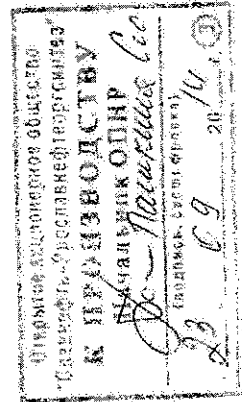 Открытое акционерное общество
"Славнефть-Ярославнефтеоргсинтез"
К ПРОИЗВОДСТВУ
Начальник ОПНР
(подпись, расш. фамилия)
23 09 2014 г.